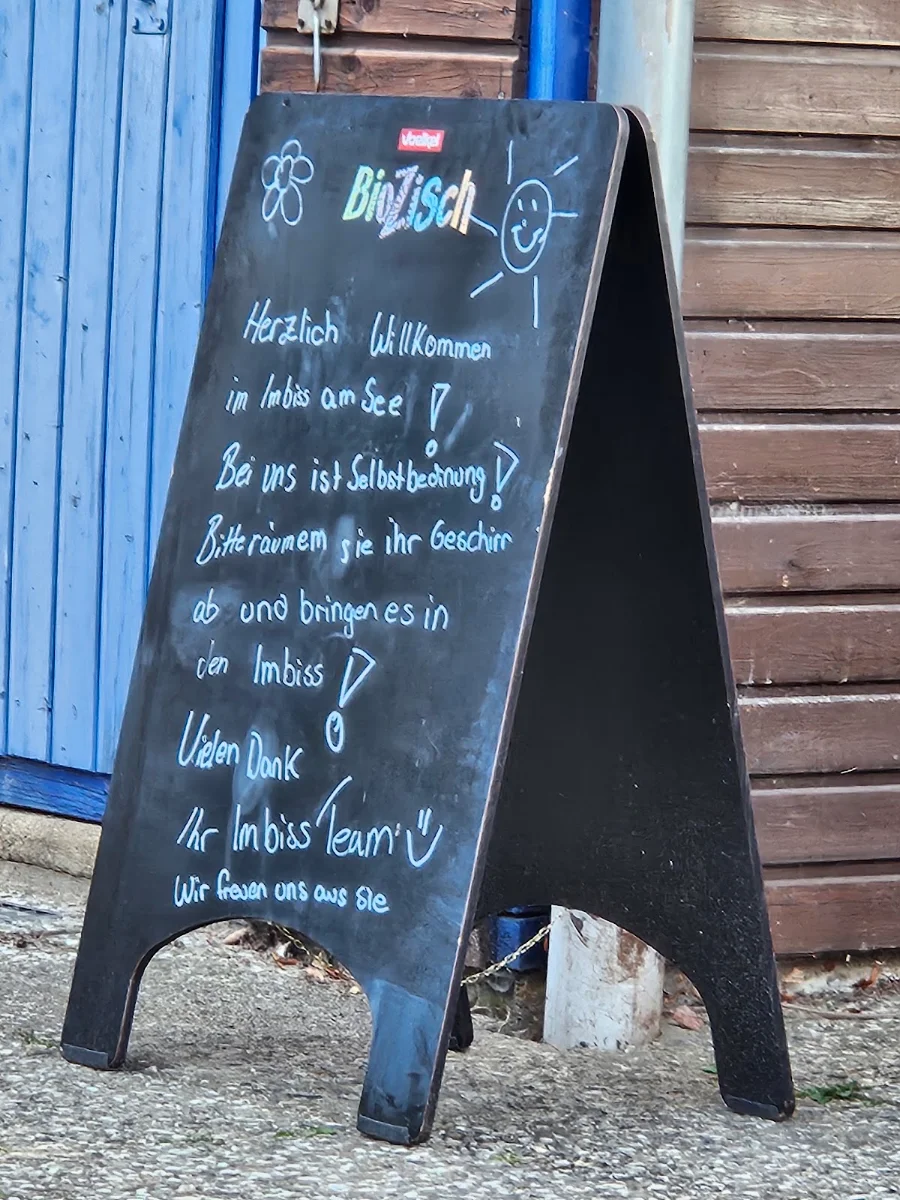 Voelkel
BioZisch
Herzlich Willkommen
im Imbiss am See !
Bei uns ist Selbstbedinung !
Bitte räumem sie ihr Geschirr
ab und bringen es in
den Imbiss !
Vielen Dank
Ihr Imbiss Team
Wir freuen uns aus Sie